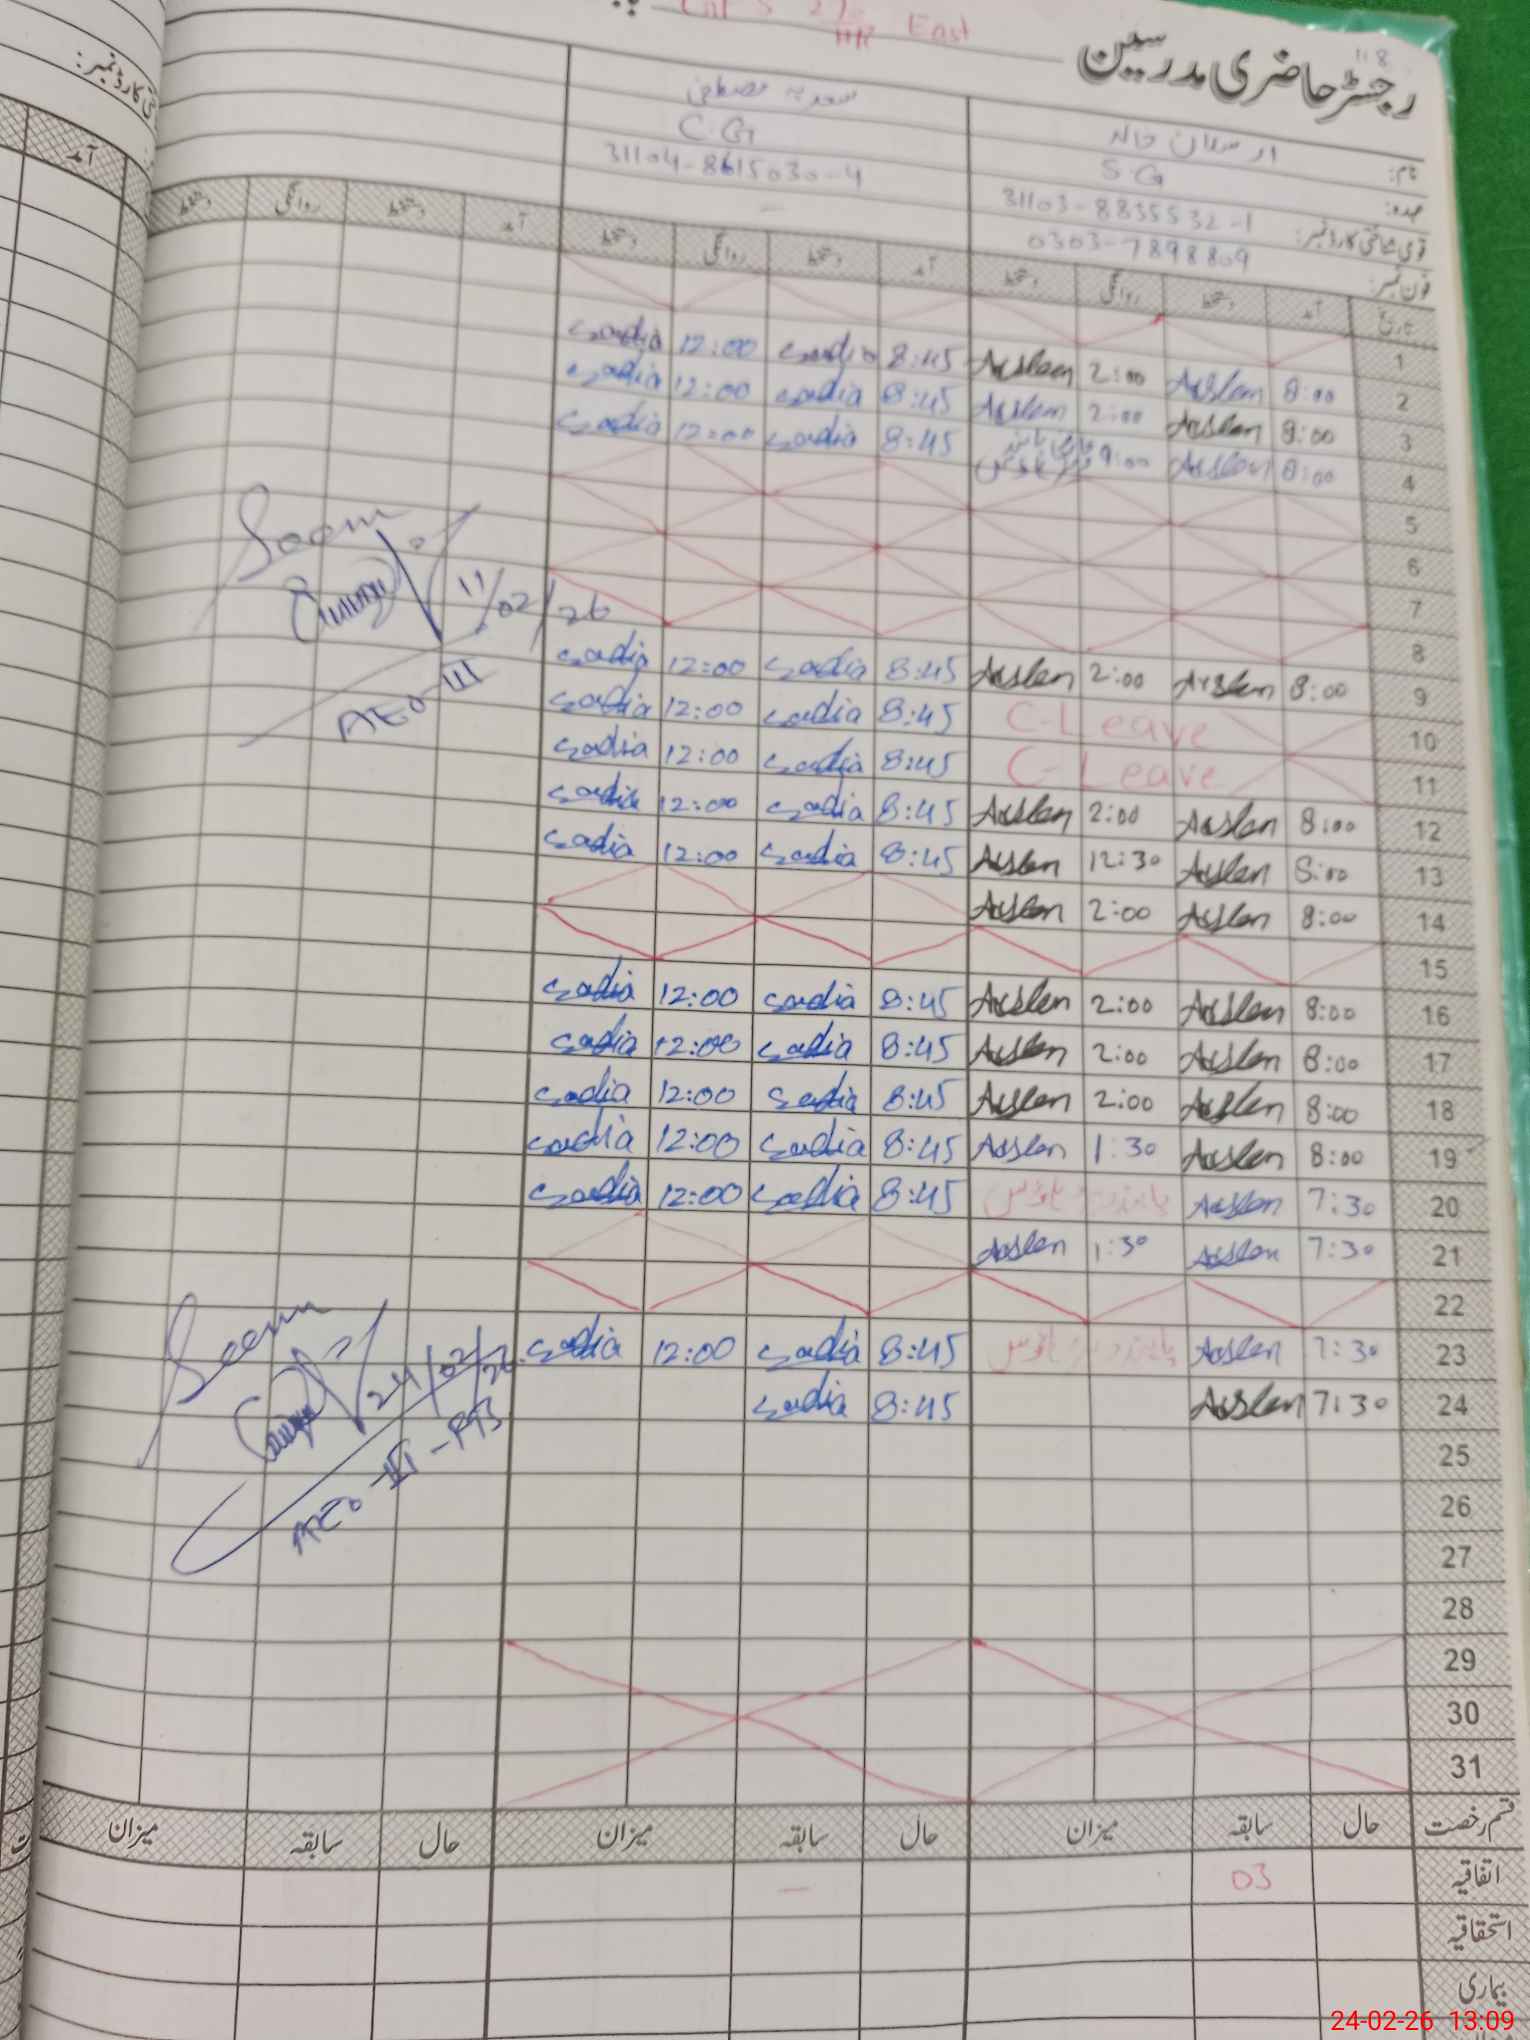 118
East
رجسٹر حاضری مدرسین
نام: ارسلان خالد سعدیہ مصطفی
عہدہ: S.G C.G
قومی شناختی کارڈ نمبر: 31103-8835532-1 31104-8615030-4
فون نمبر: 0303-7898809 —
تاریخ آمد دستخط روانگی دستخط آمد دستخط روانگی دستخط آمد دستخط روانگی دستخط
1
2 8:00 Arslan 2:00 Arslan 8:45 sadia 12:00 sadia
3 8:00 Arslan 2:00 Arslan 8:45 sadia 12:00 sadia
4 8:00 Arslan 9:00 8:45 sadia 12:00 sadia
5
6
7
8
9 8:00 Arslan 2:00 Arslan 8:45 sadia 12:00 sadia
10 C-Leave 8:45 sadia 12:00 sadia
11 C-Leave 8:45 sadia 12:00 sadia
12 8:00 Arslan 2:00 Arslan 8:45 sadia 12:00 sadia
13 8:00 Arslan 12:30 Arslan 8:45 sadia 12:00 sadia
14 8:00 Arslan 2:00 Arslan
15
16 8:00 Arslan 2:00 Arslan 8:45 sadia 12:00 sadia
17 8:00 Arslan 2:00 Arslan 8:45 sadia 12:00 sadia
18 8:00 Arslan 2:00 Arslan 8:45 sadia 12:00 sadia
19 8:00 Arslan 1:30 Arslan 8:45 sadia 12:00 sadia
20 7:30 Arslan 8:45 sadia 12:00 sadia
21 7:30 Arslan 1:30 Arslan
22
23 7:30 Arslan 8:45 sadia 12:00 sadia
24 7:30 Arslan 8:45 sadia
25
26
27
28
29
30
31
Seen
11/02/26
AEO-III
Seen
24/02/26
قسم رخصت حال سابقہ میزان حال سابقہ میزان حال سابقہ میزان
اتفاقیہ 03 —
استحقاقیہ
بیماری
شناختی کارڈ نمبر:
آمد
24-02-26 13:09